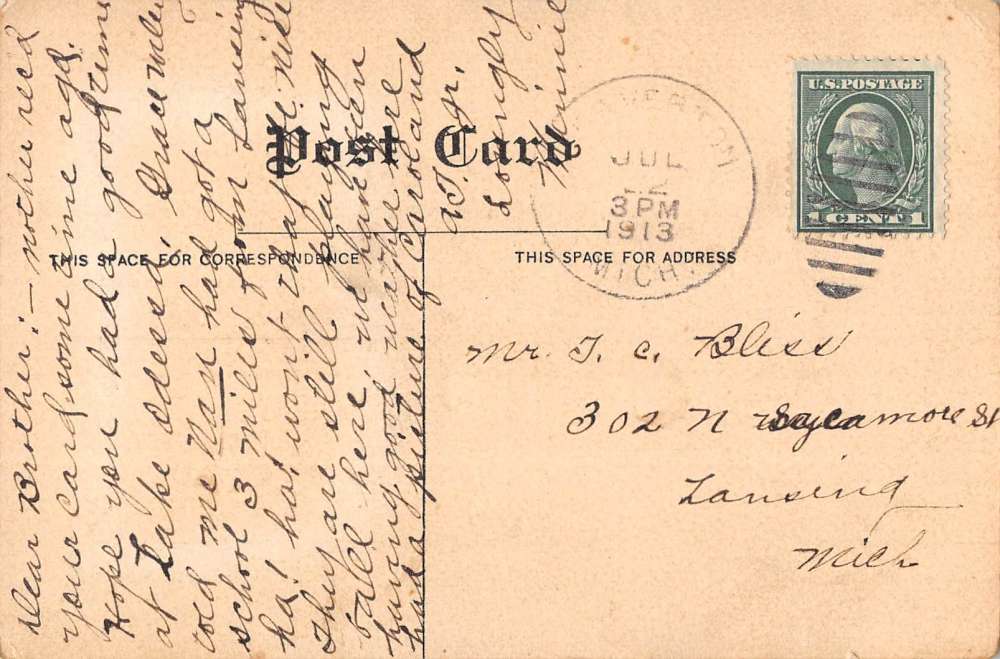 Post Card
THIS SPACE FOR CORRESPONDENCE
THIS SPACE FOR ADDRESS
U.S. POSTAGE
1 CENT 1
JUL
3 PM
1913
MICH.
Dear Brother:- Mother recd
your card some time ago.
Hope you had a good time
at Lake Odessa, Grace
told me Nan had got a
school 3 miles from Lansing
ha! ha! won't that be nice
They are still playing
ball here, we have been
having good weather here
had a picture of
Lovingly
Minnie
Mr. T. C. Bliss
302 N Sycamore St
Lansing
Mich